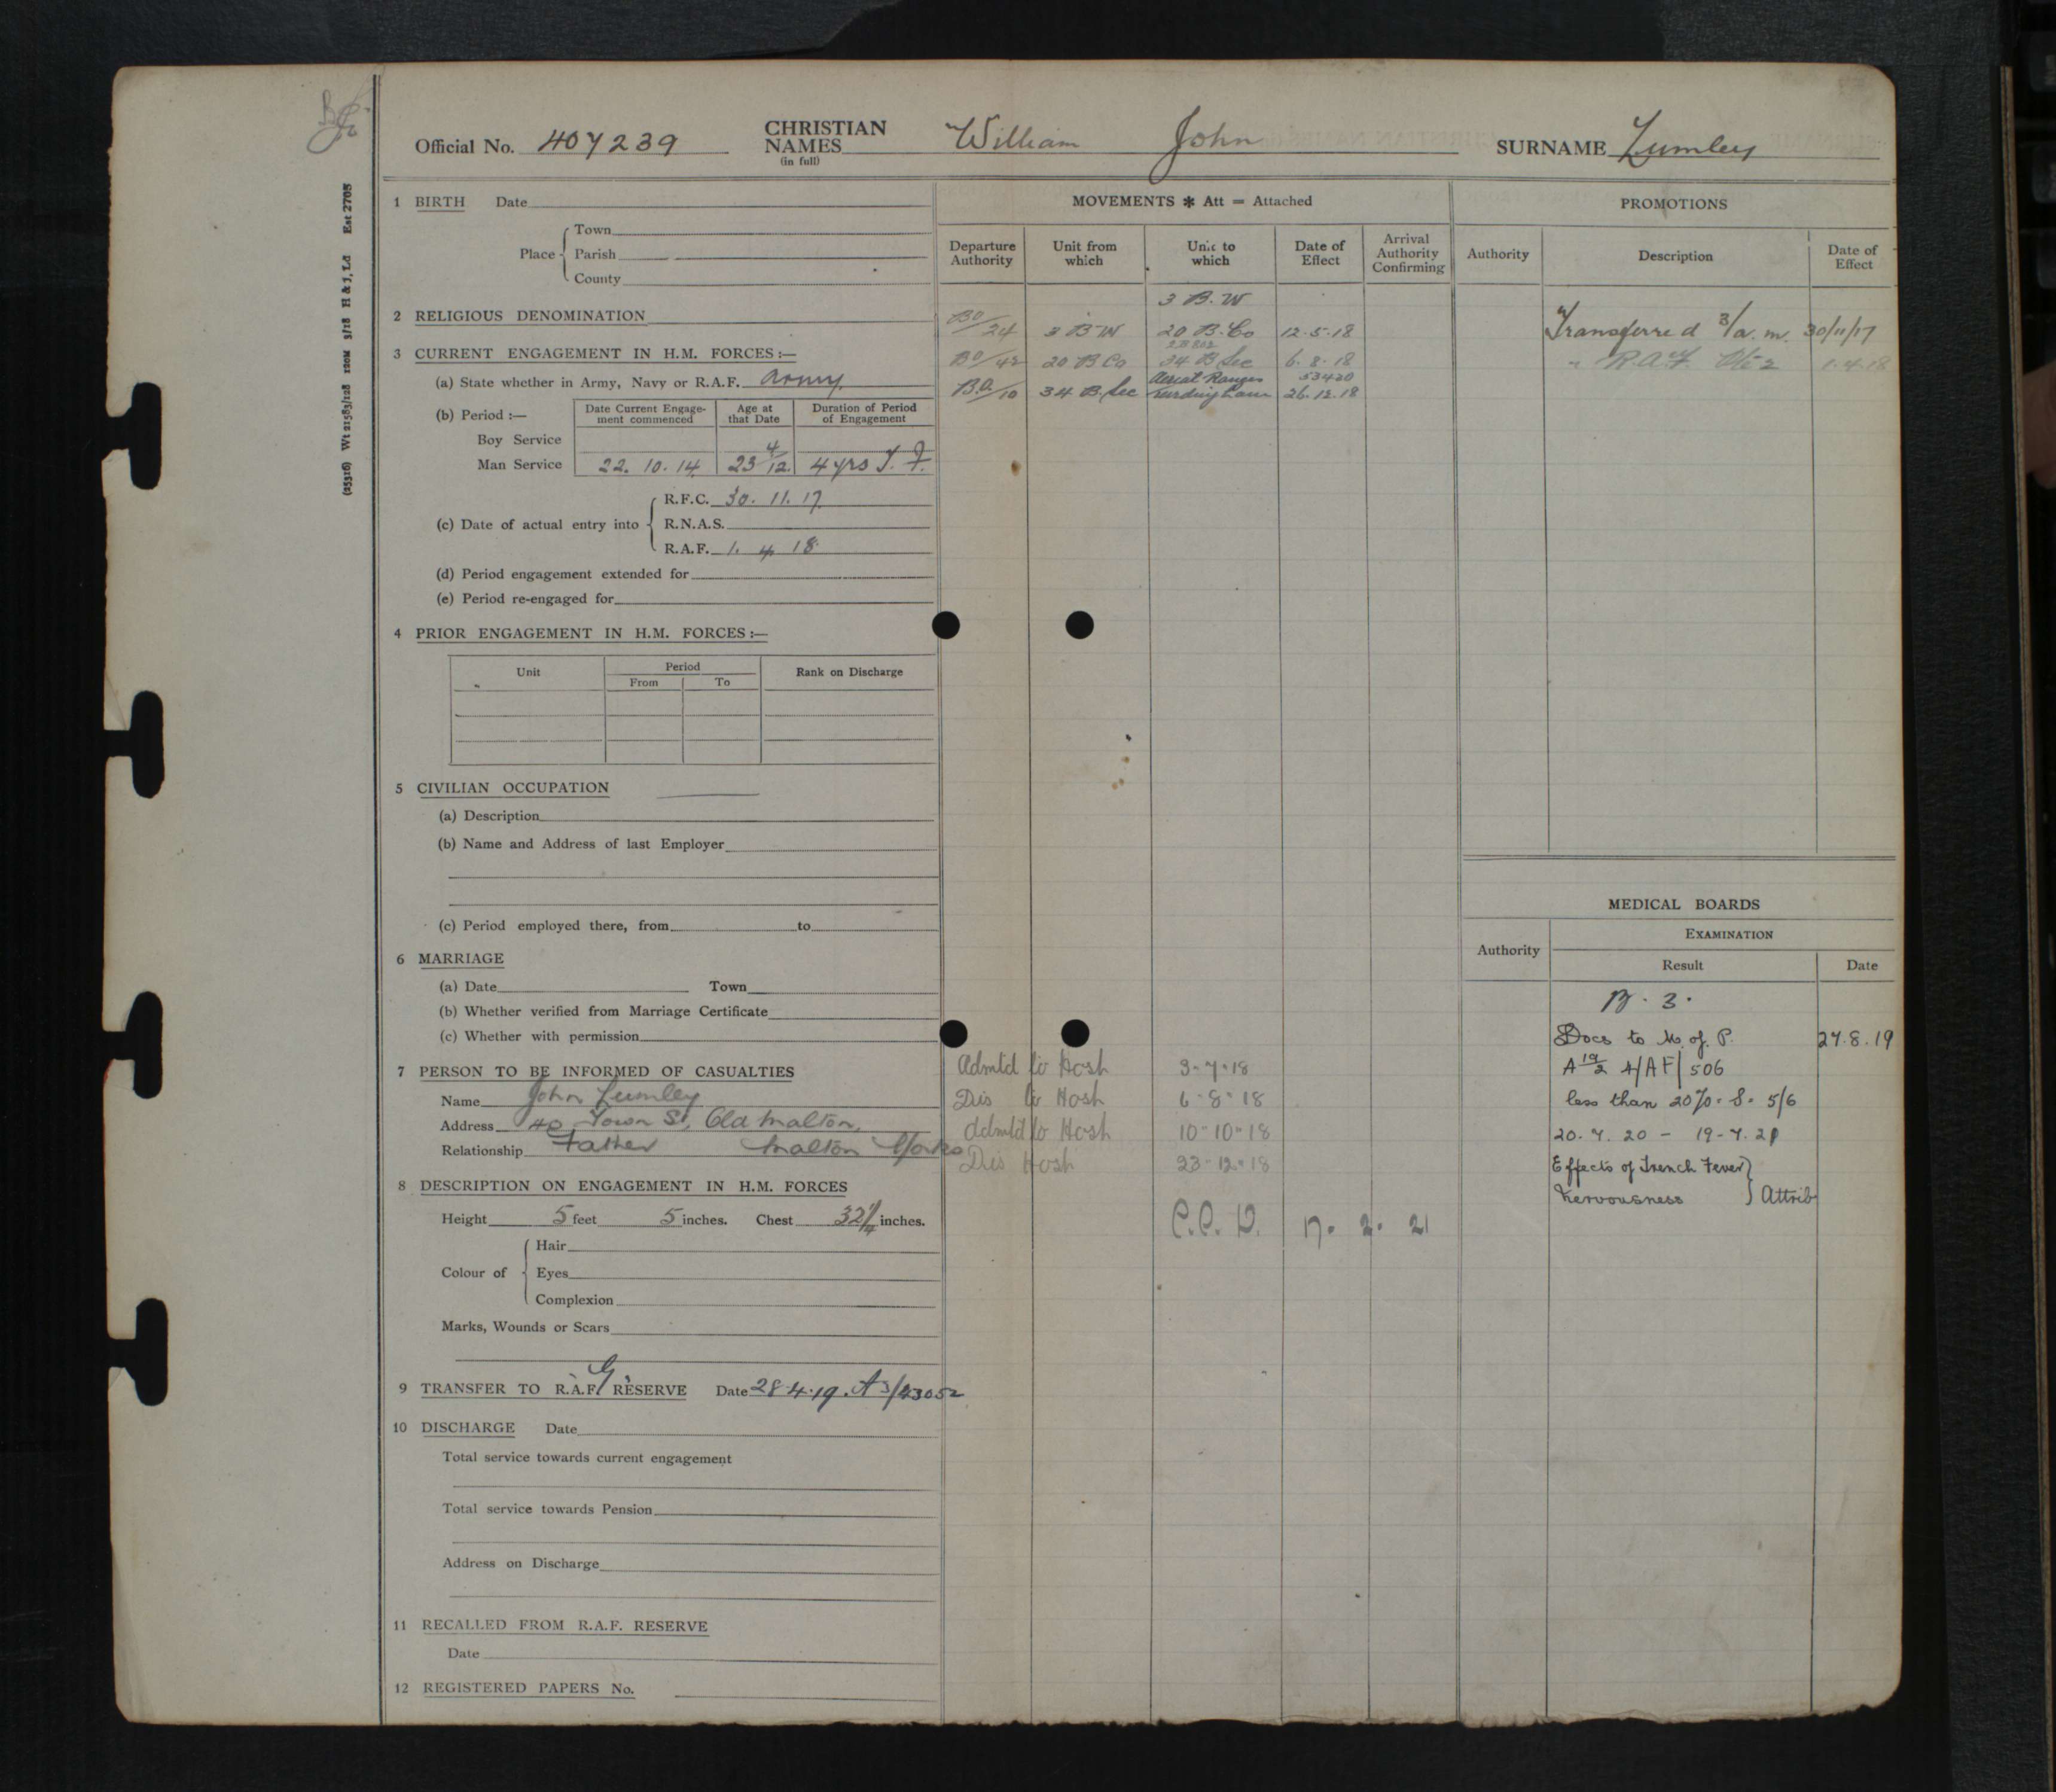 Official No. 407239 CHRISTIAN NAMES (in full) William John SURNAME Lumley
(25316) Wt 21583/128 120M 5/18 H & J, Ld Est 2705
1 BIRTH Date
Place Town
Parish
County
2 RELIGIOUS DENOMINATION
3 CURRENT ENGAGEMENT IN H.M. FORCES :—
(a) State whether in Army, Navy or R.A.F. Army
(b) Period :—
Date Current Engage-ment commenced Age at that Date Duration of Period of Engagement
Boy Service
Man Service 22. 10. 14 23 4/12 4 yrs T. F.
(c) Date of actual entry into
R.F.C. 30. 11. 17
R.N.A.S.
R.A.F. 1. 4 18
(d) Period engagement extended for
(e) Period re-engaged for
4 PRIOR ENGAGEMENT IN H.M. FORCES :—
Unit Period Rank on Discharge
From To
5 CIVILIAN OCCUPATION
(a) Description
(b) Name and Address of last Employer
(c) Period employed there, from to
6 MARRIAGE
(a) Date Town
(b) Whether verified from Marriage Certificate
(c) Whether with permission
7 PERSON TO BE INFORMED OF CASUALTIES
Name John Lumley
Address 40 Town St, Old Malton,
Relationship Father Malton Yorks
8 DESCRIPTION ON ENGAGEMENT IN H.M. FORCES
Height 5 feet 5 inches. Chest 32 1/4 inches.
Colour of Hair
Eyes
Complexion
Marks, Wounds or Scars
G
9 TRANSFER TO R.A.F. RESERVE Date 28.4.19. A3/43052
10 DISCHARGE Date
Total service towards current engagement
Total service towards Pension
Address on Discharge
11 RECALLED FROM R.A.F. RESERVE
Date
12 REGISTERED PAPERS No.
MOVEMENTS * Att = Attached
Departure Authority Unit from which Unit to which Date of Effect Arrival Authority Confirming
3 B.W
BO/24 3 B W 20 B. Co 12-5-18
BO/42 20 B Co 34 B Sec 6.8.18
Aerial Ranges 53420
BO/10 34 B. Sec 26.12.18
Admtd to Hosh 3-7-18
Dis to Hosh 6-8-18
Admtd to Hosh 10-10-18
Dis Hosh 23-12-18
17. 2. 21
PROMOTIONS
Authority Description Date of Effect
Transferred 3/a.m. 30/11/17
" R.A.F. 1.4.18
MEDICAL BOARDS
Authority EXAMINATION
Result Date
B. 3.
Docs to M. of P. 27.8.19
A 19/2 4/AF/506
less than 20%. 8. 5/6
20.7.20 - 19-7.21
Effects of Trench Fever
Nervousness } Attrib